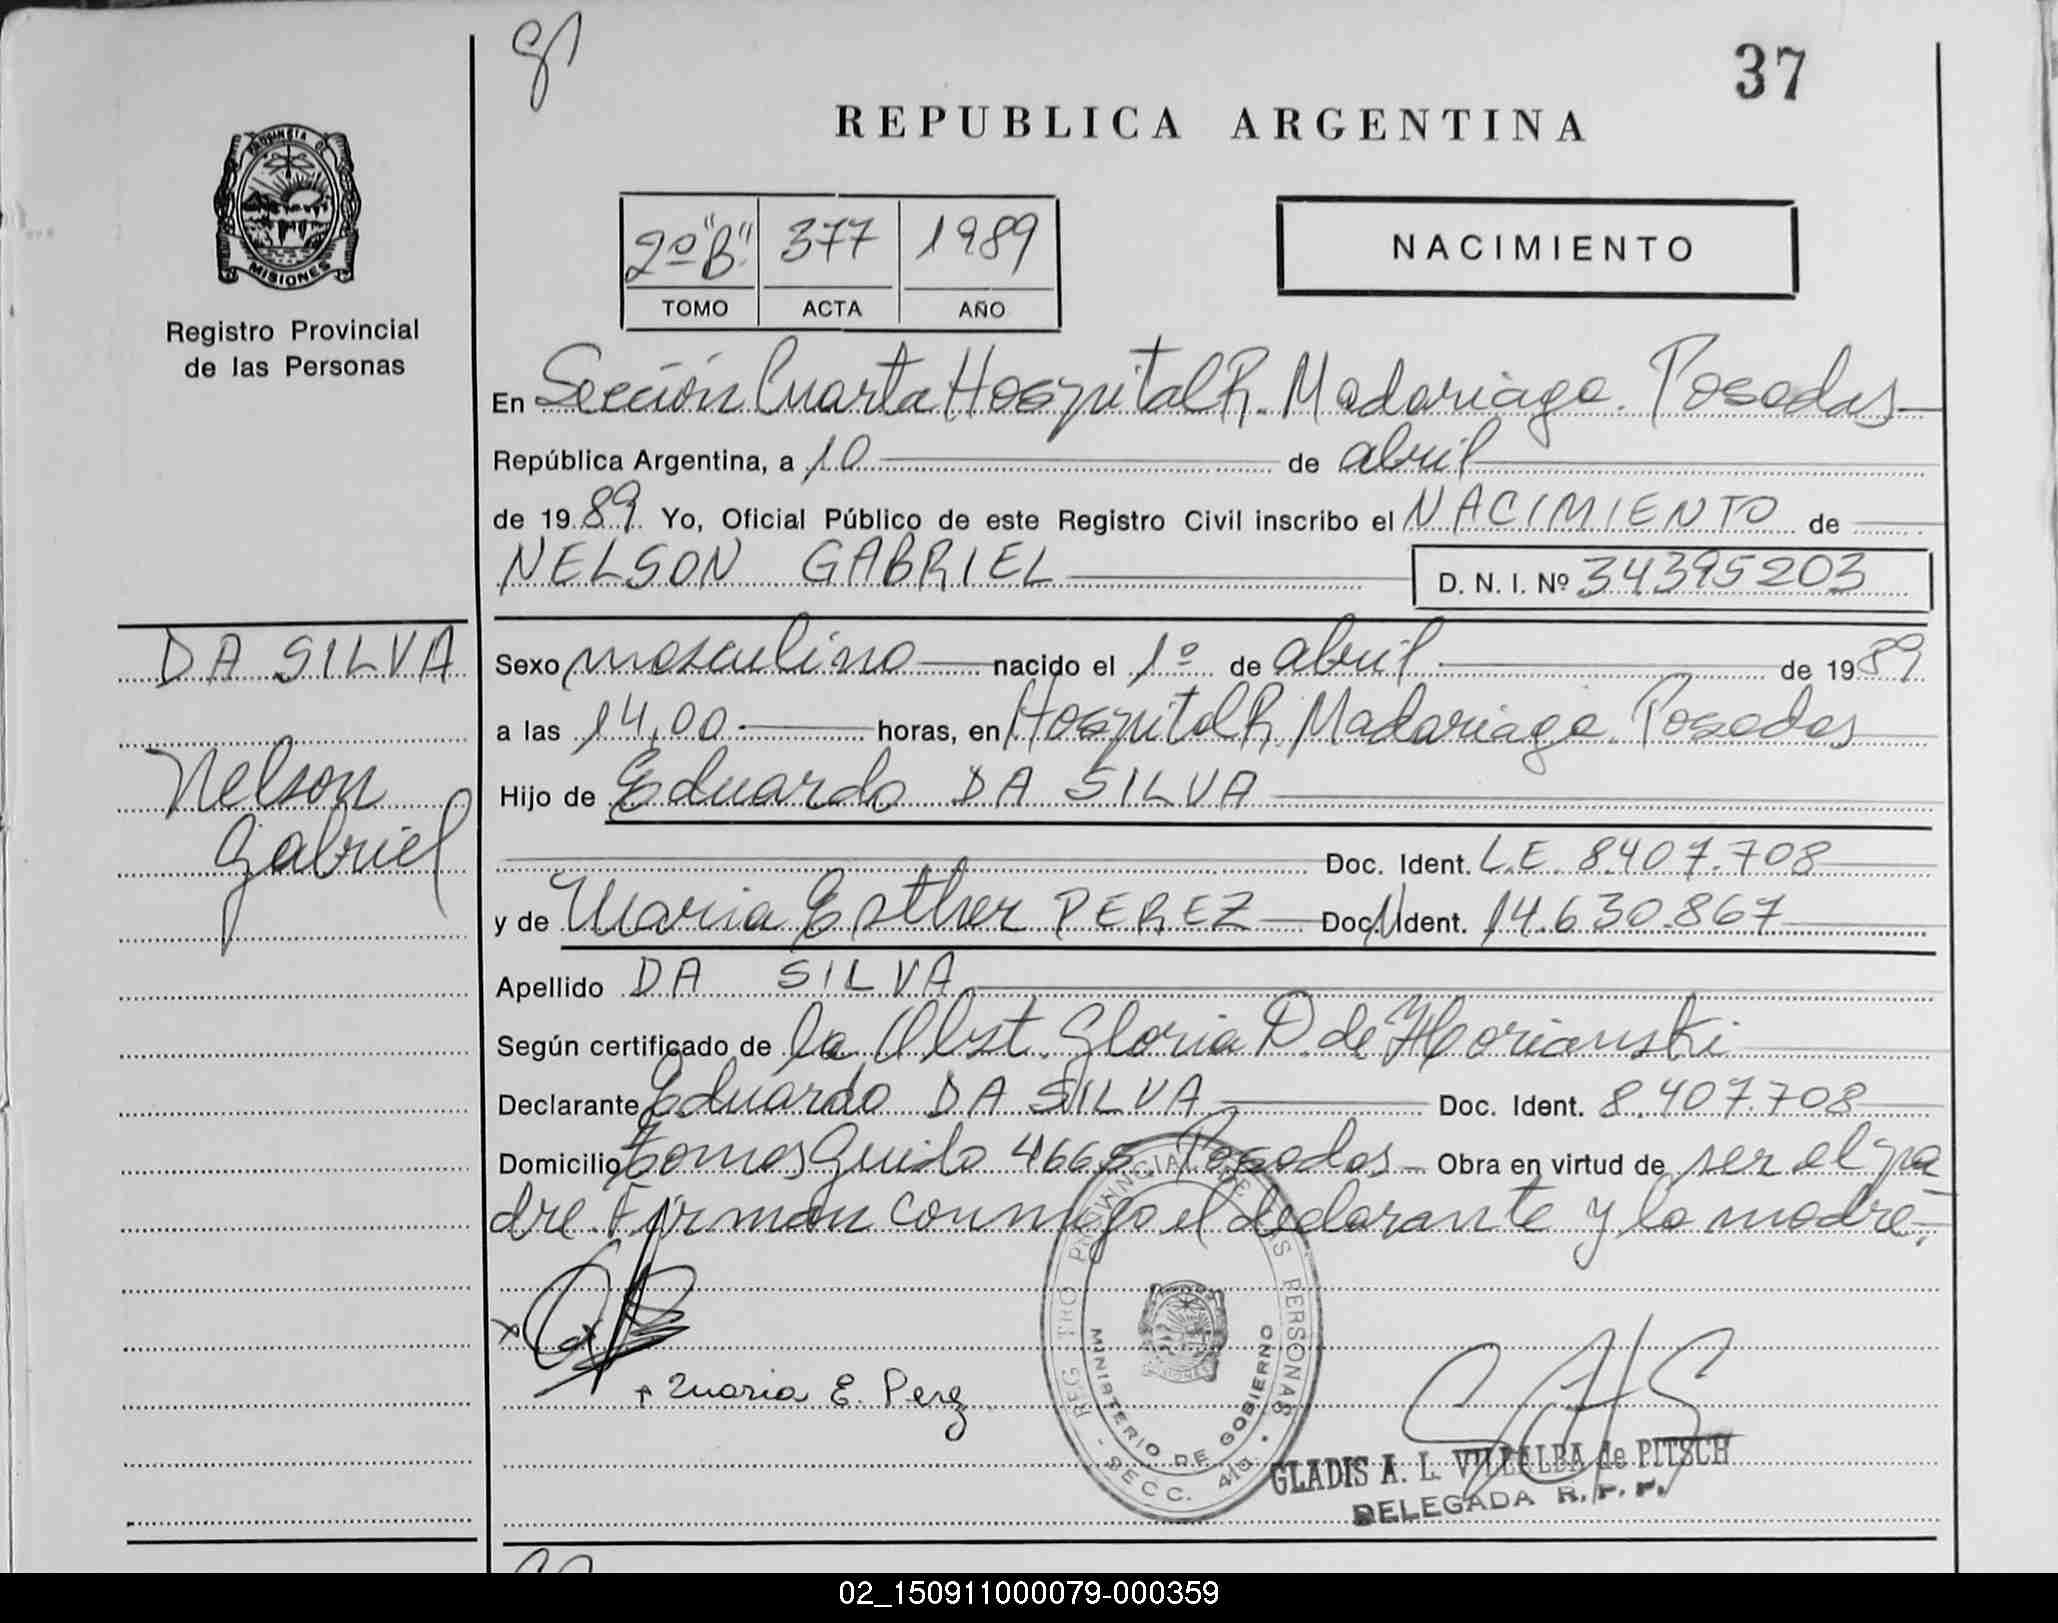 37
REPUBLICA ARGENTINA
PROVINCIA DE
MISIONES
Registro Provincial
de las Personas
2º "B" 377 1989
TOMO ACTA AÑO
NACIMIENTO
En Sección Cuarta Hospital R. Madariaga. Posadas
República Argentina, a 10 de abril
de 1989 Yo, Oficial Público de este Registro Civil inscribo el NACIMIENTO de
NELSON GABRIEL D. N. I. Nº 34395203
DA SILVA
Nelson
Gabriel
Sexo masculino nacido el 1º de abril de 1989
a las 14,00 horas, en Hospital R. Madariaga. Posadas
Hijo de Eduardo DA SILVA
Doc. Ident. L.E. 8.407.708
y de Maria Esther PEREZ Doc. Ident. 14.630.867
Apellido DA SILVA
Según certificado de la Obst. Gloria D. de
Declarante Eduardo DA SILVA Doc. Ident. 8.407.708
Domicilio Tomas Guido 4665 Posadas Obra en virtud de ser el pa
dre. Firman conmigo el declarante y la madre.
x
+ Maria E. Perez
REGISTRO PROVINCIAL DE LAS PERSONAS
MINISTERIO DE GOBIERNO
SECC. 4ta.
GLADIS A. L. VILLALBA de PITSCH
DELEGADA R. P. P.
02_150911000079-000359